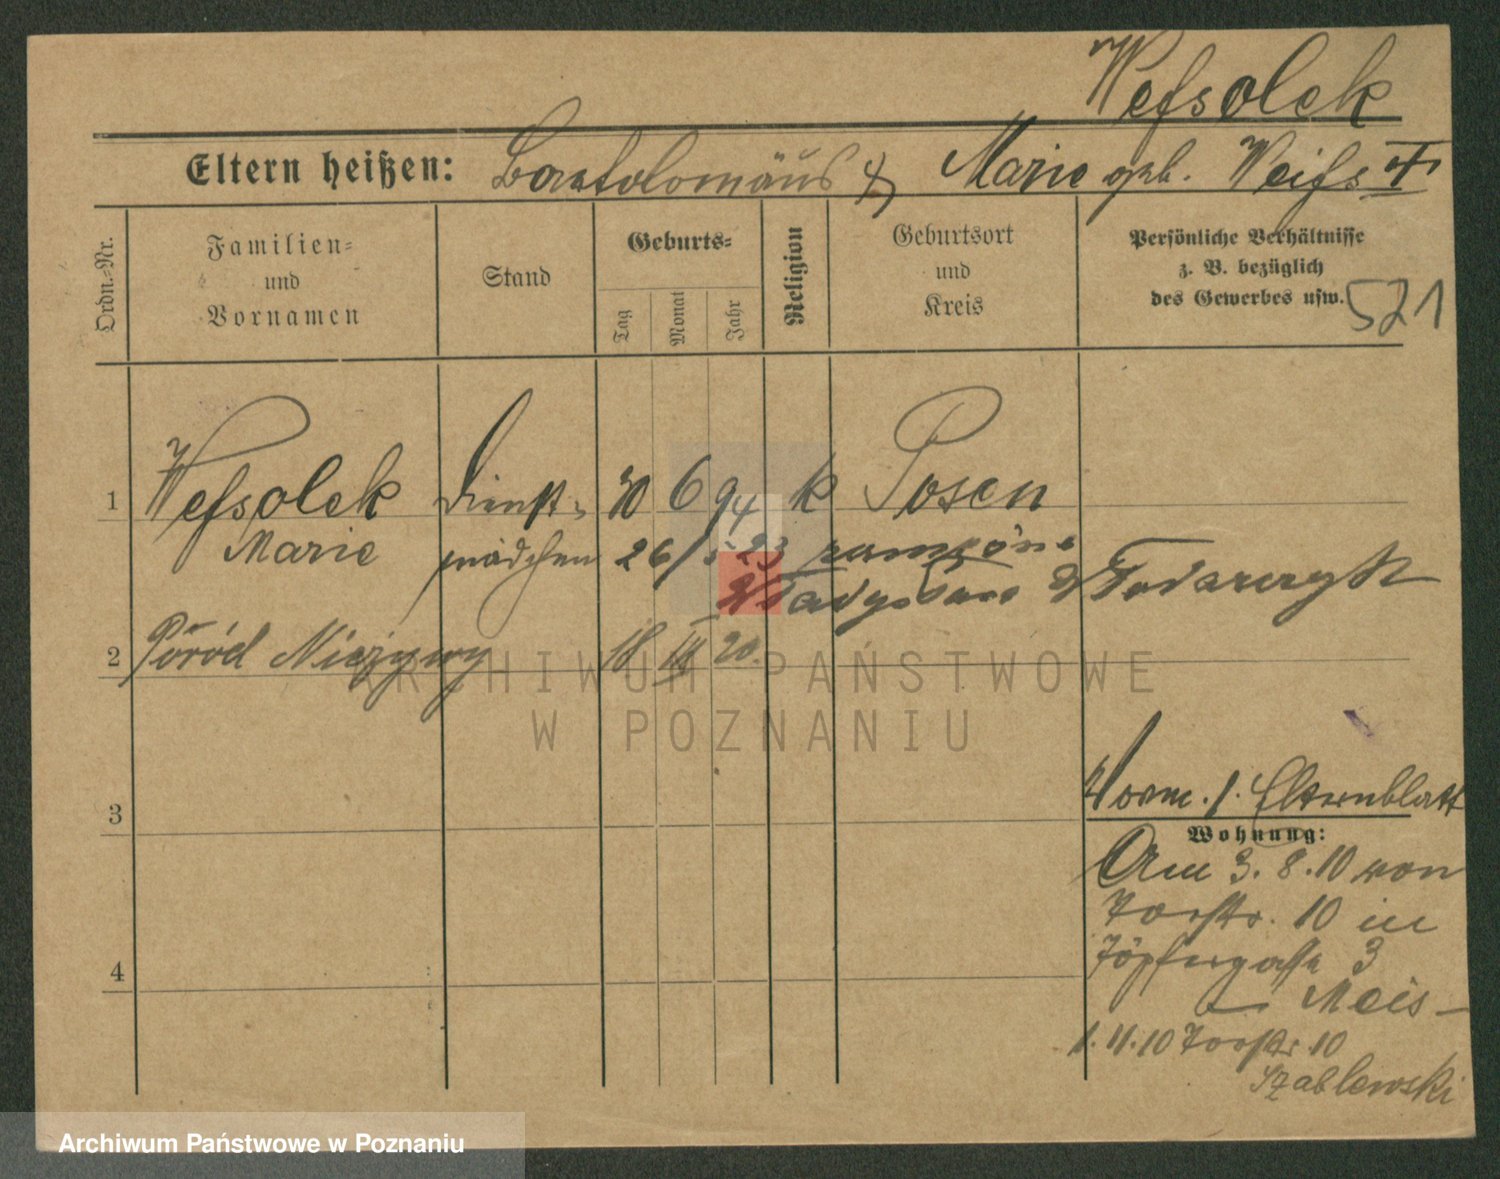 Wefsolek
Eltern heißen: Bartolomäus & Marie geb. Weifs
Ordn.-Nr.
Familien-
und
Vornamen
Stand
Geburts-
Tag
Monat
Jahr
Religion
Geburtsort
und
Kreis
Persönliche Verhältnisse
z. B. bezüglich
des Gewerbes usw.
521
1 Wefsolek Dienst- 30 6 94 k Posen
Marie mädchen 26/5 23
Władysław Tadarczyk
2 Poród Nieżywy 18 III 20.
3
Vorm. f. Elternblatt
Wohnung:
Am 3. 8. 10 von
Torstr. 10 in
Töpfergasse 3
Meis
4
1. 11. 10 Torstr. 10
Szablewski
ARCHIWUM PAŃSTWOWE
W POZNANIU
Archiwum Państwowe w Poznaniu